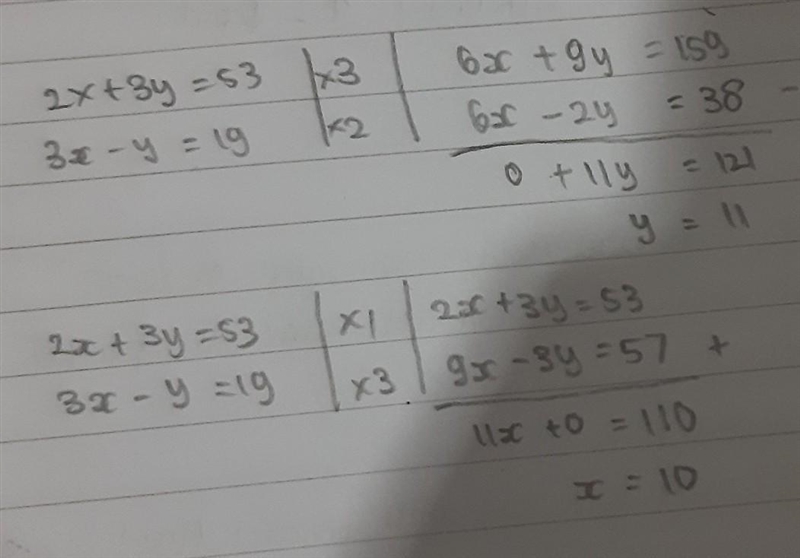 2x + 3y = 53 | x3 | 6x + 9y = 159
3x - y = 19 | x2 | 6x - 2y = 38 -
0 + 11y = 121
y = 11
2x + 3y = 53 | x1 | 2x + 3y = 53
3x - y = 19 | x3 | 9x - 3y = 57 +
11x + 0 = 110
x = 10